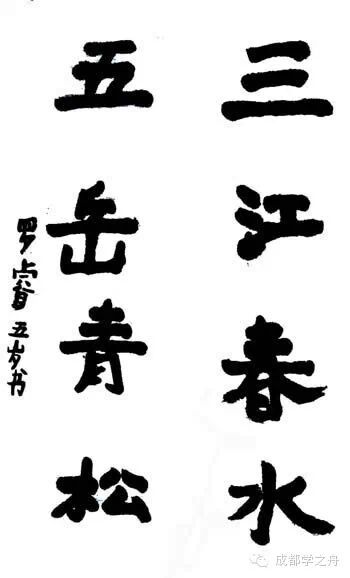 三江春水
五岳青松
罗睿五岁书
成都学之舟